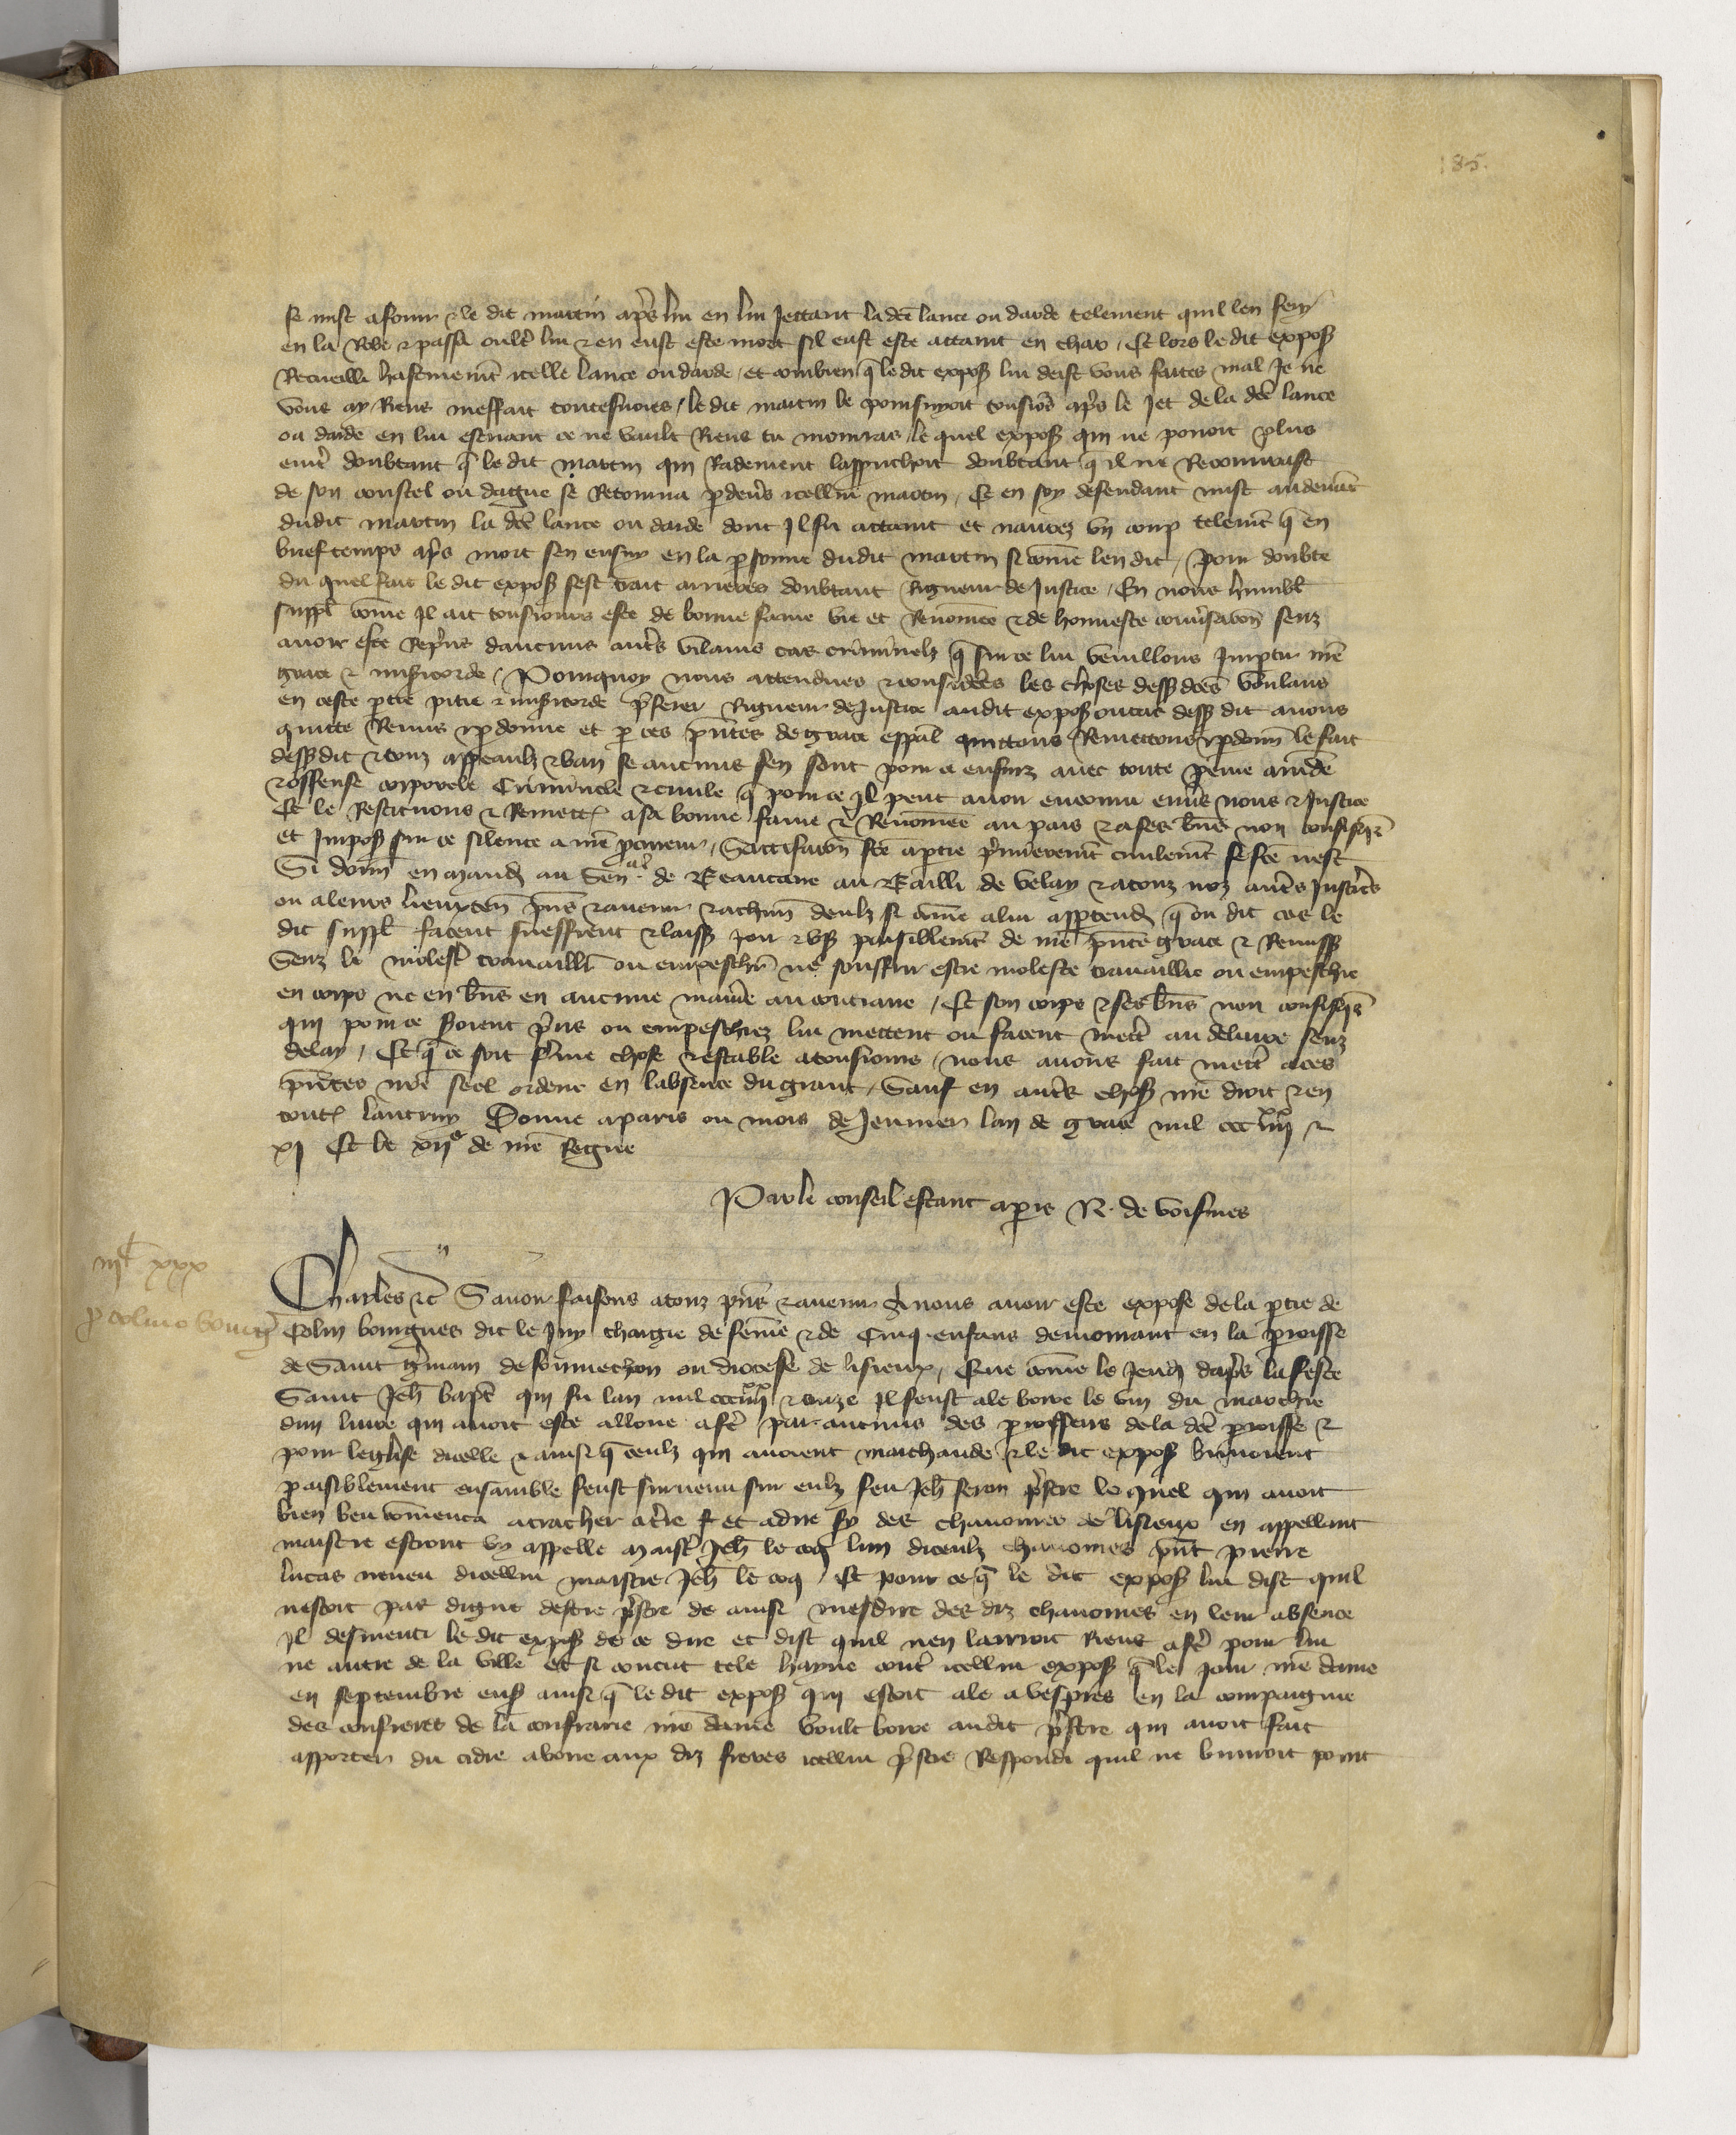 185.
se mist a fouir & le dit martin aps lui en lui Jettant la dce lance ou darde telement quil len fery
en la Robe & passa oultr lui & en eust este mort sil eust este attaint en char / Et lors le dit expos
Recueilli hastivemt icelle lance ou darde / et combien q le dit expos lui deist vous faites mal Je ne
vous ay Riens meffait toutesvoies / le dit martin le poursuyvoit tousiours aps le Jet de la dce lance
ou darde en lui escriant ce ne vault Riens tu mourras / le quel expos qui ne povoit plus
evitr doubtant q le dit martin qui Radement lapprochoit doubtant q il ne Recouvrast
de son coustel ou dague se Retourna p devers icellui martin / Et en soy defendant mist audevant
dudit martin la dce lance ou darde dont Il fu attaint et navrez un coup telemt q en
brief temps aps mort sen ensuy en la psonne dudit martin si come len dit / Pour doubte
du quel fait le dit expos sest trait arrieres doubtant Rigueur de Justice / En nous humbl
suppl come Il ait tousiours este de bonne fame vie et Renomee & de honneste convsacon senz
avoir este Repris daucuns autrs villains cas criminelz q sur ce lui veuillons Impartir nre
grace & misericorde / Pourquoy nous attendues & considerees les choses dess dces voulans
en ceste ptie pitie & misericorde pferer Rigueur de Justice audit expos ou cas dess dit avons
quitte Remis & pdonne et p ces pntes de grace espal quittons Remettons & pdonn le fait
dess dit & touz appeaulx & ban se aucuns sen sont pour ce ensuiz avec toute peine amde
& offense corporele Criminele & civile q pour ce Il peut avoir encouru envs nous & Justice
Et le Restituons & Remett a sa bonne fame & Renomee au pais & a ses bns non confisqz
et Impos sur ce silence a nre pcureur / Sattisfacon fce a ptie pmieremt civilemt se fce nest
Si donn en mandt au Senal de Beaucaire au Bailli de Velay & a touz noz autrs Justicrs
ou a leurs lieuxten pns & avenir & a chun deulx si come a lui apptendr q ou dit cas le
dit suppl facent sueffrent & laiss joir & us paisiblemt de nre pnte grace & Remiss
Senz le molestr travaillr ou empeschr ne souffrir estre moleste travaillie ou empeschie
en corps ne en bns en aucune maniere au contraire / Et son corps & ses bns non confisqz
qui pour ce seroient pris ou empeschiez lui mettent ou facent mettr au delivre senz
delay / Et q ce soit ferme chose & estable a tousiours / nous avons fait mettr a ces
pntes nre seel ordene en labsence du grant / Sauf en autrs chos nre droit & en
tout lautruy Donne a paris ou mois de Jenvier lan de grace mil ccc iiiixx &
xj Et le xije de nre Regne
Par le conseil estant a pis N. de Voisines
iijc xxx
p colino bourg
Charles &c Savoir faisons a touz pns & avenir A nous avoir este expose de la ptie de
Colin bourgues dit le Juy chargie de feme & de Cinq enfans demourant en la proisse
de Saint Gmain de fourmechon ou diocese de lisieux / Que come le Jeudi daps la feste
Saint Jeh bapte qui fu lan mil ccc iiiixx & onze Il feust ale boire le vin du marchie
dun livre qui avoit este alloue a fer par aucuns des proissiens de la dce proisse &
pour leglise dicelle & ainsi q ceulx qui avoient marchande & le dit expos buvoient
paisiblement ensamble feust survenu sur eulx feu Jeh feron pstre le quel qui avoit
bien beu comenca a tracher a tre & et a dire fy des chanoines de lisieux en appellant
maistre estront un appelle maistr Jeh le coq lun diceulx chanoines pnt pierre
lucas neveu dicellui maistre Jeh le coq / Et pour ce q le dit expos lui dist quil
nestoit pas digne destre pstre de ainsi mesdire des diz chanoines en leur absence
Il desmenti le dit expos de ce dire et dist quil nen lairroit Riens a fer pour lui
ne autre de la ville et si concut tele hayne contr icellui expos q le jour nre dame
en septembre ens ainsi q le dit expos qui estoit ale a vespres en la compaignie
des confreres de la confrarie nre dame voult boire audit pstre qui avoit fait
apporter du cidre a boire aux diz freres icellui pstre Respondi quil ne buvroit point